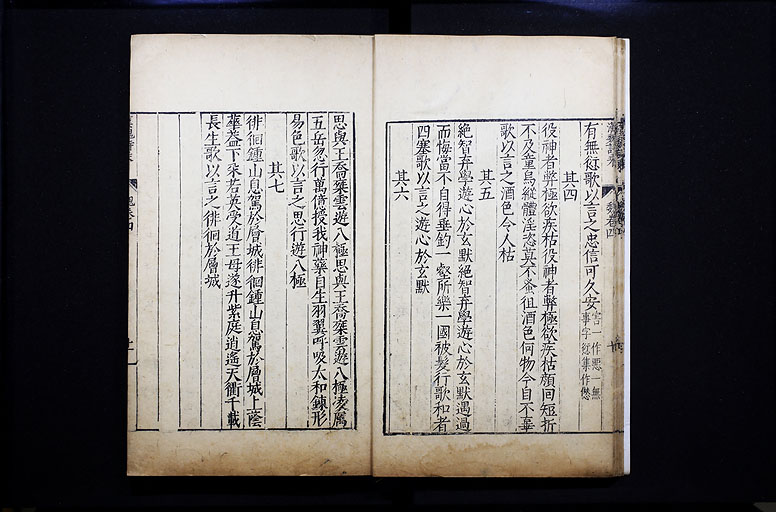 有無愆歌以言之忠信可久安害一作悪一無
事字愆集作𠎝
其四
役神者弊極欲疾枯役神者弊極欲疾枯顔回短折
不及童烏縱體淫恣莫不蚤徂酒色何物今自不辜
歌以言之酒色令人枯
其五
絶智弃學遊心於玄默絶智弃學遊心於玄默遇過
而悔當不自得垂釣一壑所樂一國被髮行歌和者
四塞歌以言之遊心於玄默
其六
思與王喬椉雲遊八極思與王喬椉雲遊八極凌厲
五岳忽行萬億授我神藥自生羽翼呼吸太和錬形
易色歌以言之思行遊八極
其七
徘徊鍾山息駕於層城徘徊鍾山息駕於層城上蔭
華葢下采若英受道王母遂升紫庭逍遙天衢千載
長生歌以言之徘徊於層城